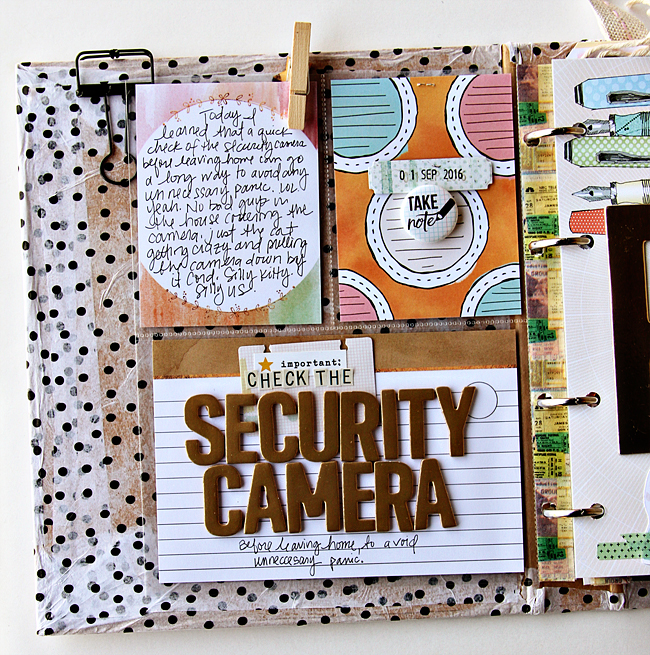 Today I
learned that a quick
check of the security camera
before leaving home can go
a long way to avoid any
unnecessary panic. LOL
Yeah. No bad guys in
the house covering the
camera, just the cat
getting crazy and pulling
the camera down by
it cord. Silly kitty.
Silly us.
01 SEP 2016
TAKE
note
important:
CHECK THE
SECURITY
CAMERA
Before leaving home, to avoid
unneccesary panic.